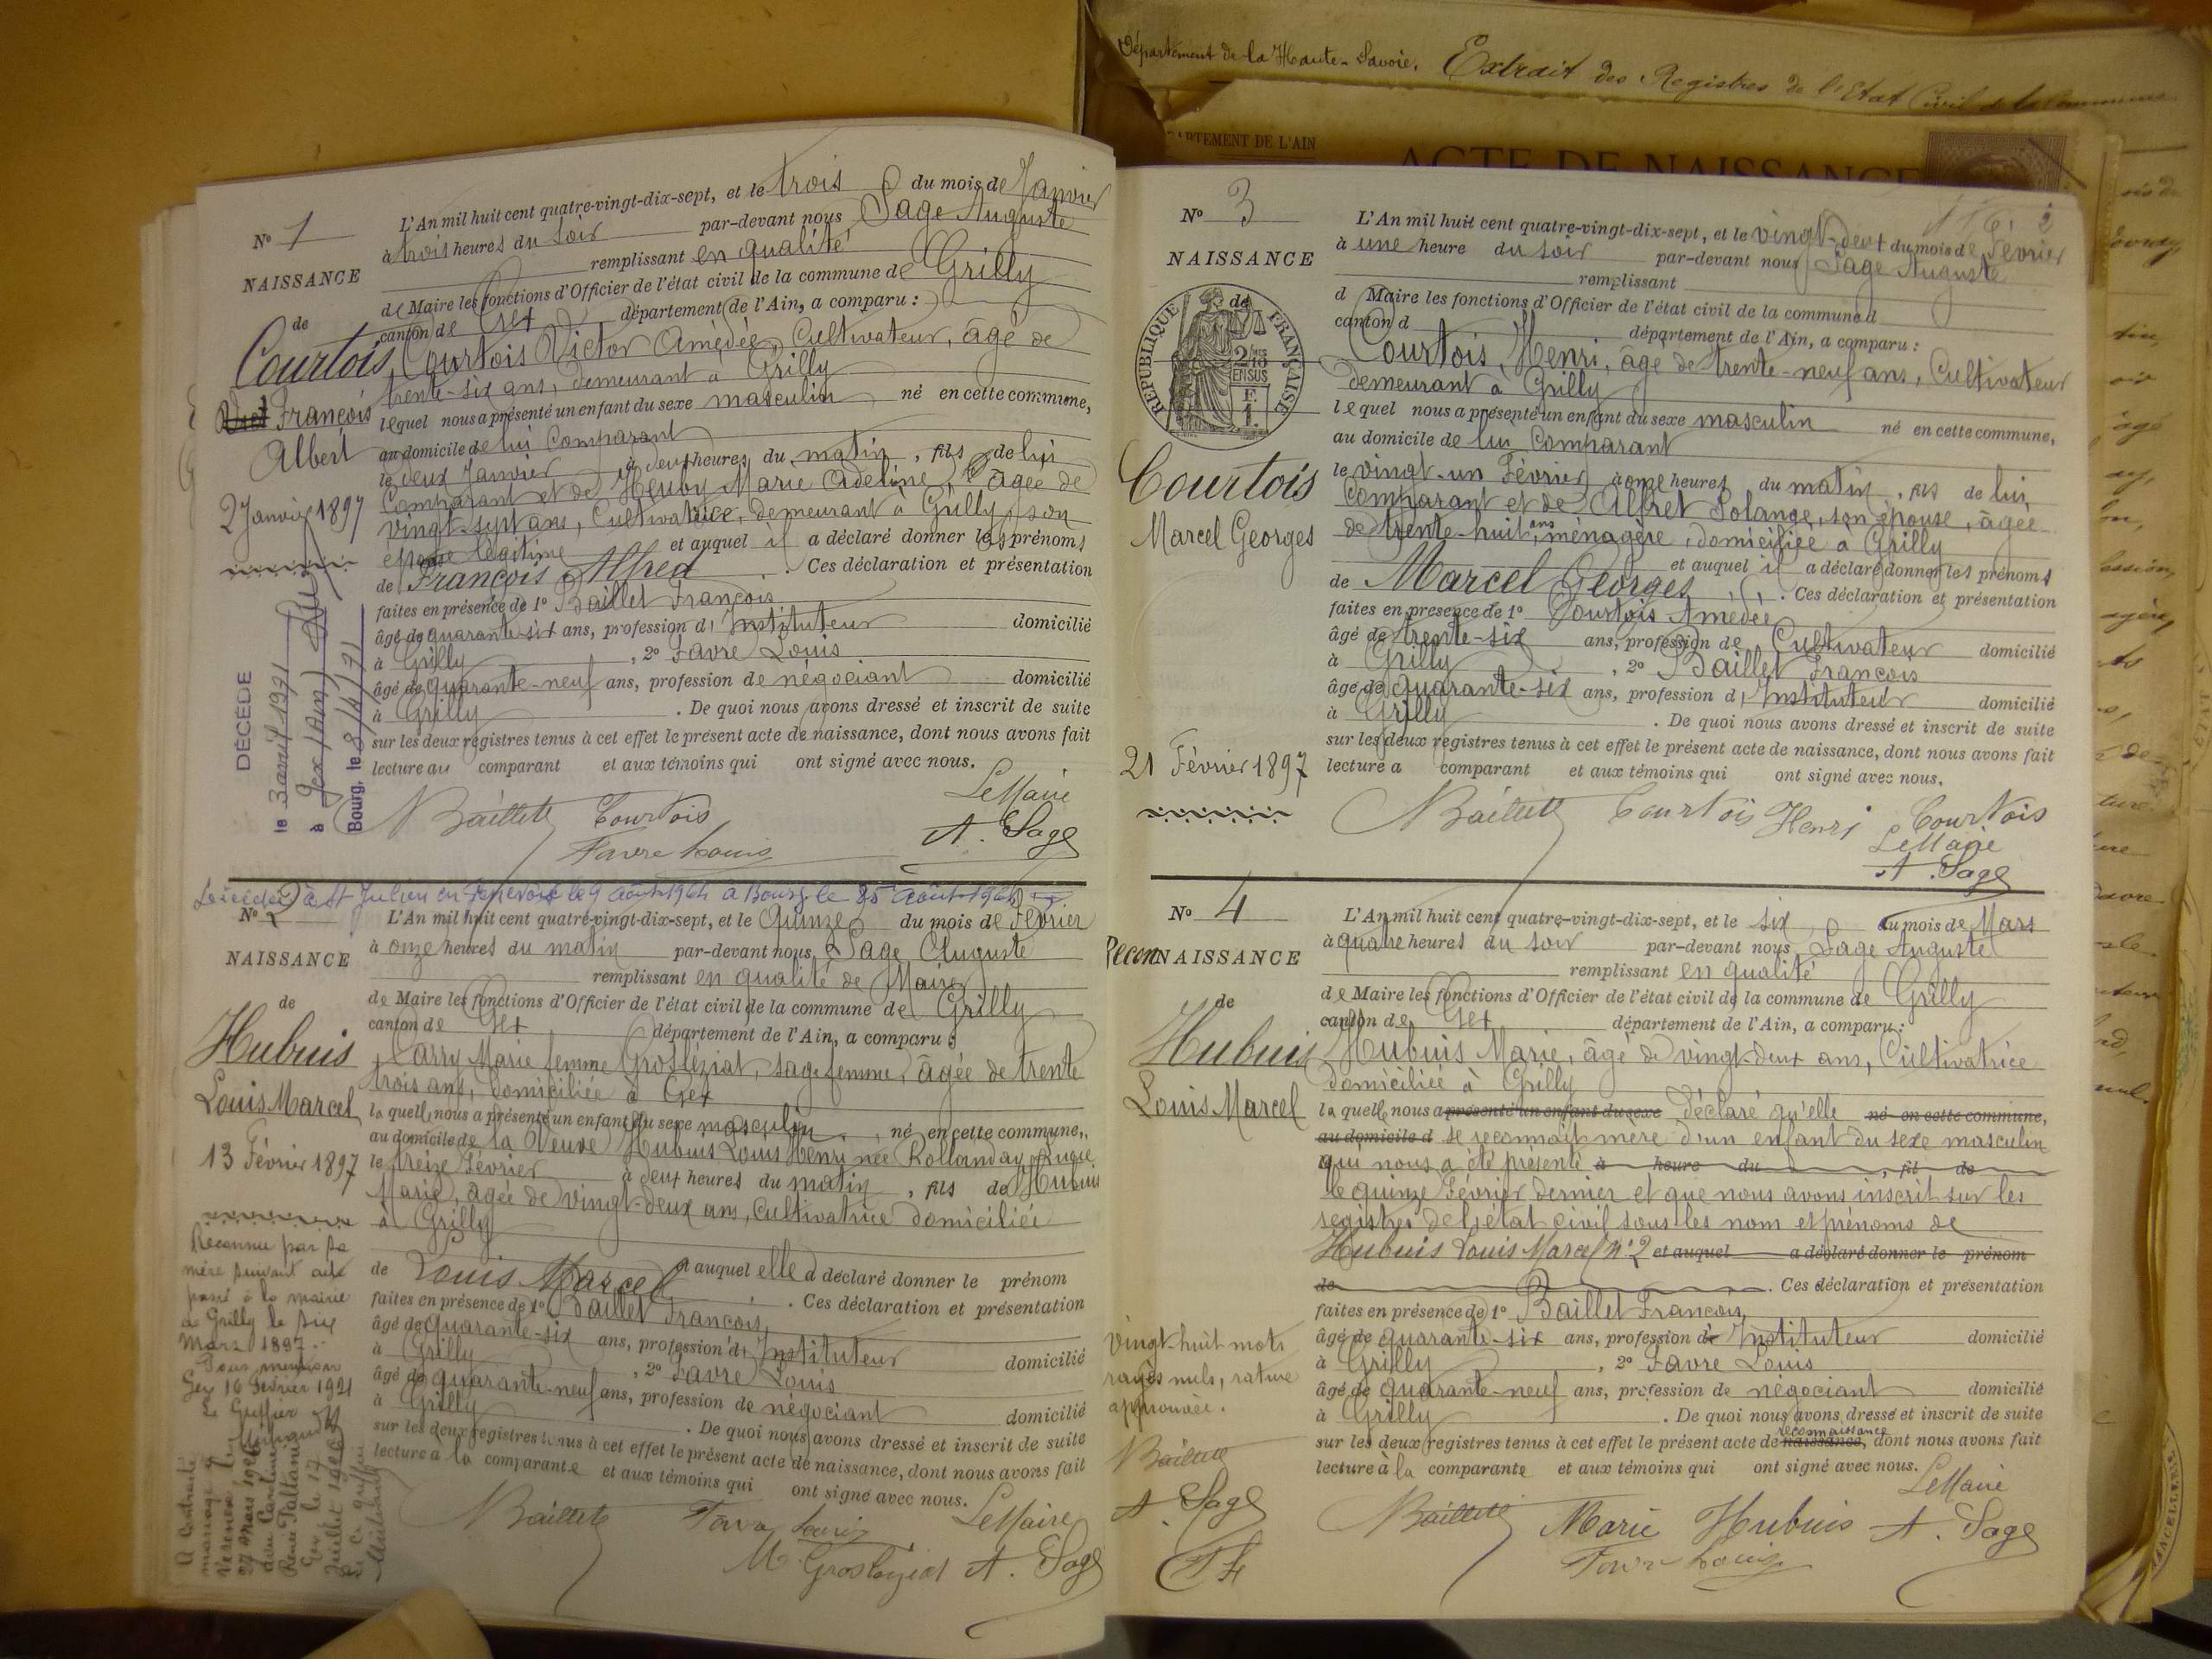 Département de la Haute-Savoie. Extrait des Registres de l'Etat Civil de la Commune
DÉPARTEMENT DE L'AIN
ACTE DE NAISSANCE
N° 1
NAISSANCE
de
Courtois
François
Albert
2 Janvier 1897
DÉCÉDÉ
le 3 avril 1971
à Gex (Ain)
Bourg, le 8/4/71
L'An mil huit cent quatre-vingt-dix-sept, et le trois du mois de Janvier
à trois heures du soir par-devant nous Sage Auguste
remplissant en qualité
de Maire les fonctions d'Officier de l'état civil de la commune de Grilly
canton de Gex département de l'Ain, a comparu :
Courtois Victor Amédée, Cultivateur, âgé de
trente-six ans, demeurant à Grilly
lequel nous a présenté un enfant du sexe masculin né en cette commune,
au domicile de lui Comparant
le deux Janvier à deux heures du matin, fils de lui
Comparant et de Henry Marie Adeline, âgée de
vingt-sept ans, Cultivatrice, demeurant à Grilly, son
épouse légitime et auquel il a déclaré donner les prénoms
de François Alfred. Ces déclaration et présentation
faites en présence de 1° Baillet François
âgé de quarante-six ans, profession d'Instituteur domicilié
à Grilly, 2° Favre Louis
âgé de quarante-neuf ans, profession de négociant domicilié
à Grilly. De quoi nous avons dressé et inscrit de suite
sur les deux registres tenus à cet effet le présent acte de naissance, dont nous avons fait
lecture au comparant et aux témoins qui ont signé avec nous.
Le Maire
Baillet Courtois A. Sage
Favre Louis
Décédé à St Julien en Genevois le 9 août 1964 a Bourg le 25 août 1964
N° 2
NAISSANCE
de
Hubuis
Louis Marcel
13 Février 1897
Reconnu par sa
mère suivant acte
passé à la mairie
de Grilly le six
Mars 1897.
Pour mention
Gex 16 Février 1921
Le Greffier
A contracté
mariage à
le
27 Mars 1926
avec
Renée
Gex le 17
Juillet 1926
Le greffier
L'An mil huit cent quatre-vingt-dix-sept, et le Quinze du mois de Février
à onze heures du matin par-devant nous Sage Auguste
remplissant en qualité de Maire
de Maire les fonctions d'Officier de l'état civil de la commune de Grilly
canton de Gex département de l'Ain, a comparu :
Carry Marie femme Grosléziat, sage femme, âgée de trente
trois ans, domiciliée à Gex
laquelle nous a présenté un enfant du sexe masculin, né en cette commune,
au domicile de la Veuve Hubuis Louis Henri née Rollanday
le treize Février à deux heures du matin, fils de Hubuis
Marie, âgée de vingt-deux ans, Cultivatrice domiciliée
à Grilly
et auquel elle a déclaré donner le prénom
de Louis Marcel. Ces déclaration et présentation
faites en présence de 1° Baillet François
âgé de quarante-six ans, profession d'Instituteur domicilié
à Grilly, 2° Favre Louis
âgé de quarante-neuf ans, profession de négociant domicilié
à Grilly. De quoi nous avons dressé et inscrit de suite
sur les deux registres tenus à cet effet le présent acte de naissance, dont nous avons fait
lecture à la comparante et aux témoins qui ont signé avec nous.
Le Maire
Baillet Favre Louis
M Grosléziat A. Sage
2
N° 3
NAISSANCE
de
REPUBLIQUE FRANÇAISE
2/10mes
EN SUS
Courtois
Marcel Georges
21 Février 1897
L'An mil huit cent quatre-vingt-dix-sept, et le vingt-deux du mois de Février
à une heure du soir par-devant nous Sage Auguste
remplissant
d Maire les fonctions d'Officier de l'état civil de la commune d
canton d département de l'Ain, a comparu :
Courtois, Henri, âgé de trente-neuf ans, Cultivateur
demeurant à Grilly
lequel nous a présenté un enfant du sexe masculin né en cette commune,
au domicile de lui Comparant
le vingt-un Février à onze heures du matin, fils de lui
Comparant et de Alfret Solange, son épouse, âgée
de trente-huit ans, ménagère, domiciliée à Grilly
et auquel il a déclaré donner les prénoms
de Marcel Georges. Ces déclaration et présentation
faites en présence de 1° Courtois Amédée
âgé de trente-six ans, profession de Cultivateur domicilié
à Grilly, 2° Baillet François
âgé de quarante-six ans, profession d'Instituteur domicilié
à Grilly. De quoi nous avons dressé et inscrit de suite
sur les deux registres tenus à cet effet le présent acte de naissance, dont nous avons fait
lecture a comparant et aux témoins qui ont signé avec nous.
Baillet Courtois Henri Courtois
Le Maire
A. Sage
N° 4
Recon NAISSANCE
de
Hubuis
Louis Marcel
Vingt-huit mots
rayés nuls, rature
approuvée.
Baillet
A. Sage
L'An mil huit cent quatre-vingt-dix-sept, et le six du mois de Mars
à quatre heures du soir par-devant nous Sage Auguste
remplissant en qualité
de Maire les fonctions d'Officier de l'état civil de la commune de Grilly
canton de Gex département de l'Ain, a comparu :
Hubuis Marie, âgé de vingt-deux ans, Cultivatrice
domiciliée à Grilly
laquelle nous a présenté un enfant du sexe déclaré qu'elle né en cette commune,
au domicile d se reconnaît mère d'un enfant du sexe masculin
qui nous a été présenté à heure du, fil de
le quinze Février dernier et que nous avons inscrit sur les
registres de l'état civil sous les nom et prénoms de
Hubuis Louis Marcel n° 2 et auquel a déclaré donner le prénom
de. Ces déclaration et présentation
faites en présence de 1° Baillet François
âgé de quarante-six ans, profession d'Instituteur domicilié
à Grilly, 2° Favre Louis
âgé de quarante-neuf ans, profession de négociant domicilié
à Grilly. De quoi nous avons dressé et inscrit de suite
sur les deux registres tenus à cet effet le présent acte de naissance, reconnaissance dont nous avons fait
lecture à la comparante et aux témoins qui ont signé avec nous.
Le Maire
Baillet Marie Hubuis A. Sage
Favre Louis